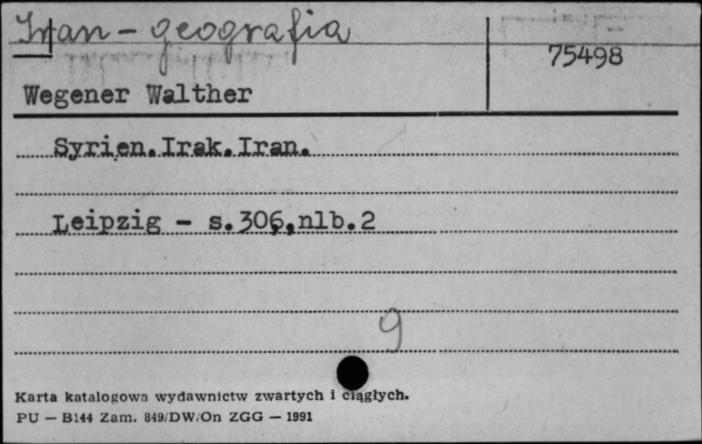 Iran - geografia
75498
Wegener Walther
Syrien.Irak.Iran.
Leipzig - s.306,nlb.2
9
Karta katalogowa wydawnictw zwartych i ciągłych.
PU — B144 Zam. 849/DW/On ZGG — 1991